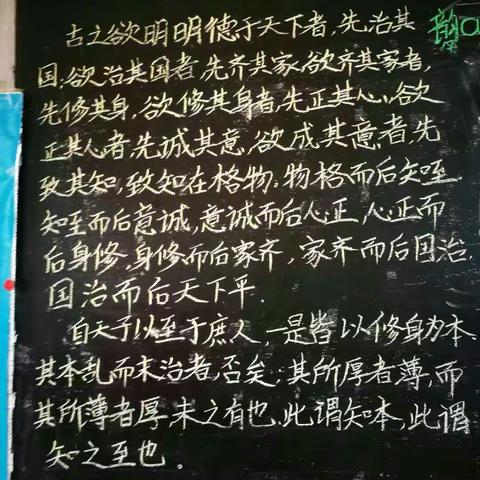 古之欲明明德于天下者,先治其
国,欲治其国者,先齐其家,欲齐其家者,
先修其身,欲修其身者,先正其心,欲
正其心者,先诚其意,欲成其意者,先
致其知,致知在格物,物格而后知至,
知至而后意诚,意诚而后心正,心正而
后身修,身修而后家齐,家齐而后国治,
国治而后天下平.
自天子以至于庶人,一是皆以修身为本.
其本乱而末治者,否矣.其所厚者薄,而
其所薄者厚,未之有也.此谓知本,此谓
知之至也。